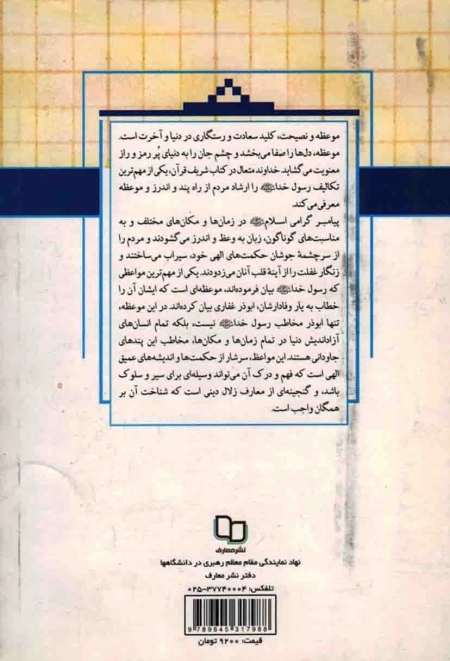 موعظه و نصیحت، کلید سعادت و رستگاری در دنیا و آخرت است.
موعظه، دل‌ها را صفا می‌بخشد و چشم جان را به دنیای پُر رمز و راز
معنویت می‌گشاید. خداوند متعال در کتاب شریف قرآن، یکی از مهم‌ترین
تکالیف رسول خداﷺ را ارشاد مردم از راه پند و اندرز و موعظه
معرفی می‌کند.
پیامبر گرامی اسلامﷺ در زمان‌ها و مکان‌های مختلف و به
مناسبت‌های گوناگون، زبان به وعظ و اندرز می‌گشودند و مردم را
از سرچشمهٔ جوشان حکمت‌های الهی خود، سیراب می‌ساختند و
زنگار غفلت را از آینهٔ قلب آنان می‌زدودند. یکی از مهم‌ترین مواعظی
که رسول خداﷺ بیان فرموده‌اند، موعظه‌ای است که ایشان آن را
خطاب به یار وفادارشان، ابوذر غفاری بیان کرده‌اند. در این موعظه،
تنها ابوذر مخاطب رسول خداﷺ نیست، بلکه تمام انسان‌های
آزاداندیش دنیا در تمام زمان‌ها و مکان‌ها، مخاطب این پندهای
جاودانی هستند. این مواعظ، سرشار از حکمت‌ها و اندیشه‌های عمیق
الهی است که فهم و درک آن می‌تواند وسیله‌ای برای سیر و سلوک
باشد، و گنجینه‌ای از معارف زلال دینی است که شناخت آن بر
همگان واجب است.
نشر معارف
نهاد نمایندگی مقام معظم رهبری در دانشگاهها
دفتر نشر معارف
تلفکس: ۳۷۷۴۰۰۰۴-۰۲۵
9789645317988
قیمت: ۹۲۰۰ تومان